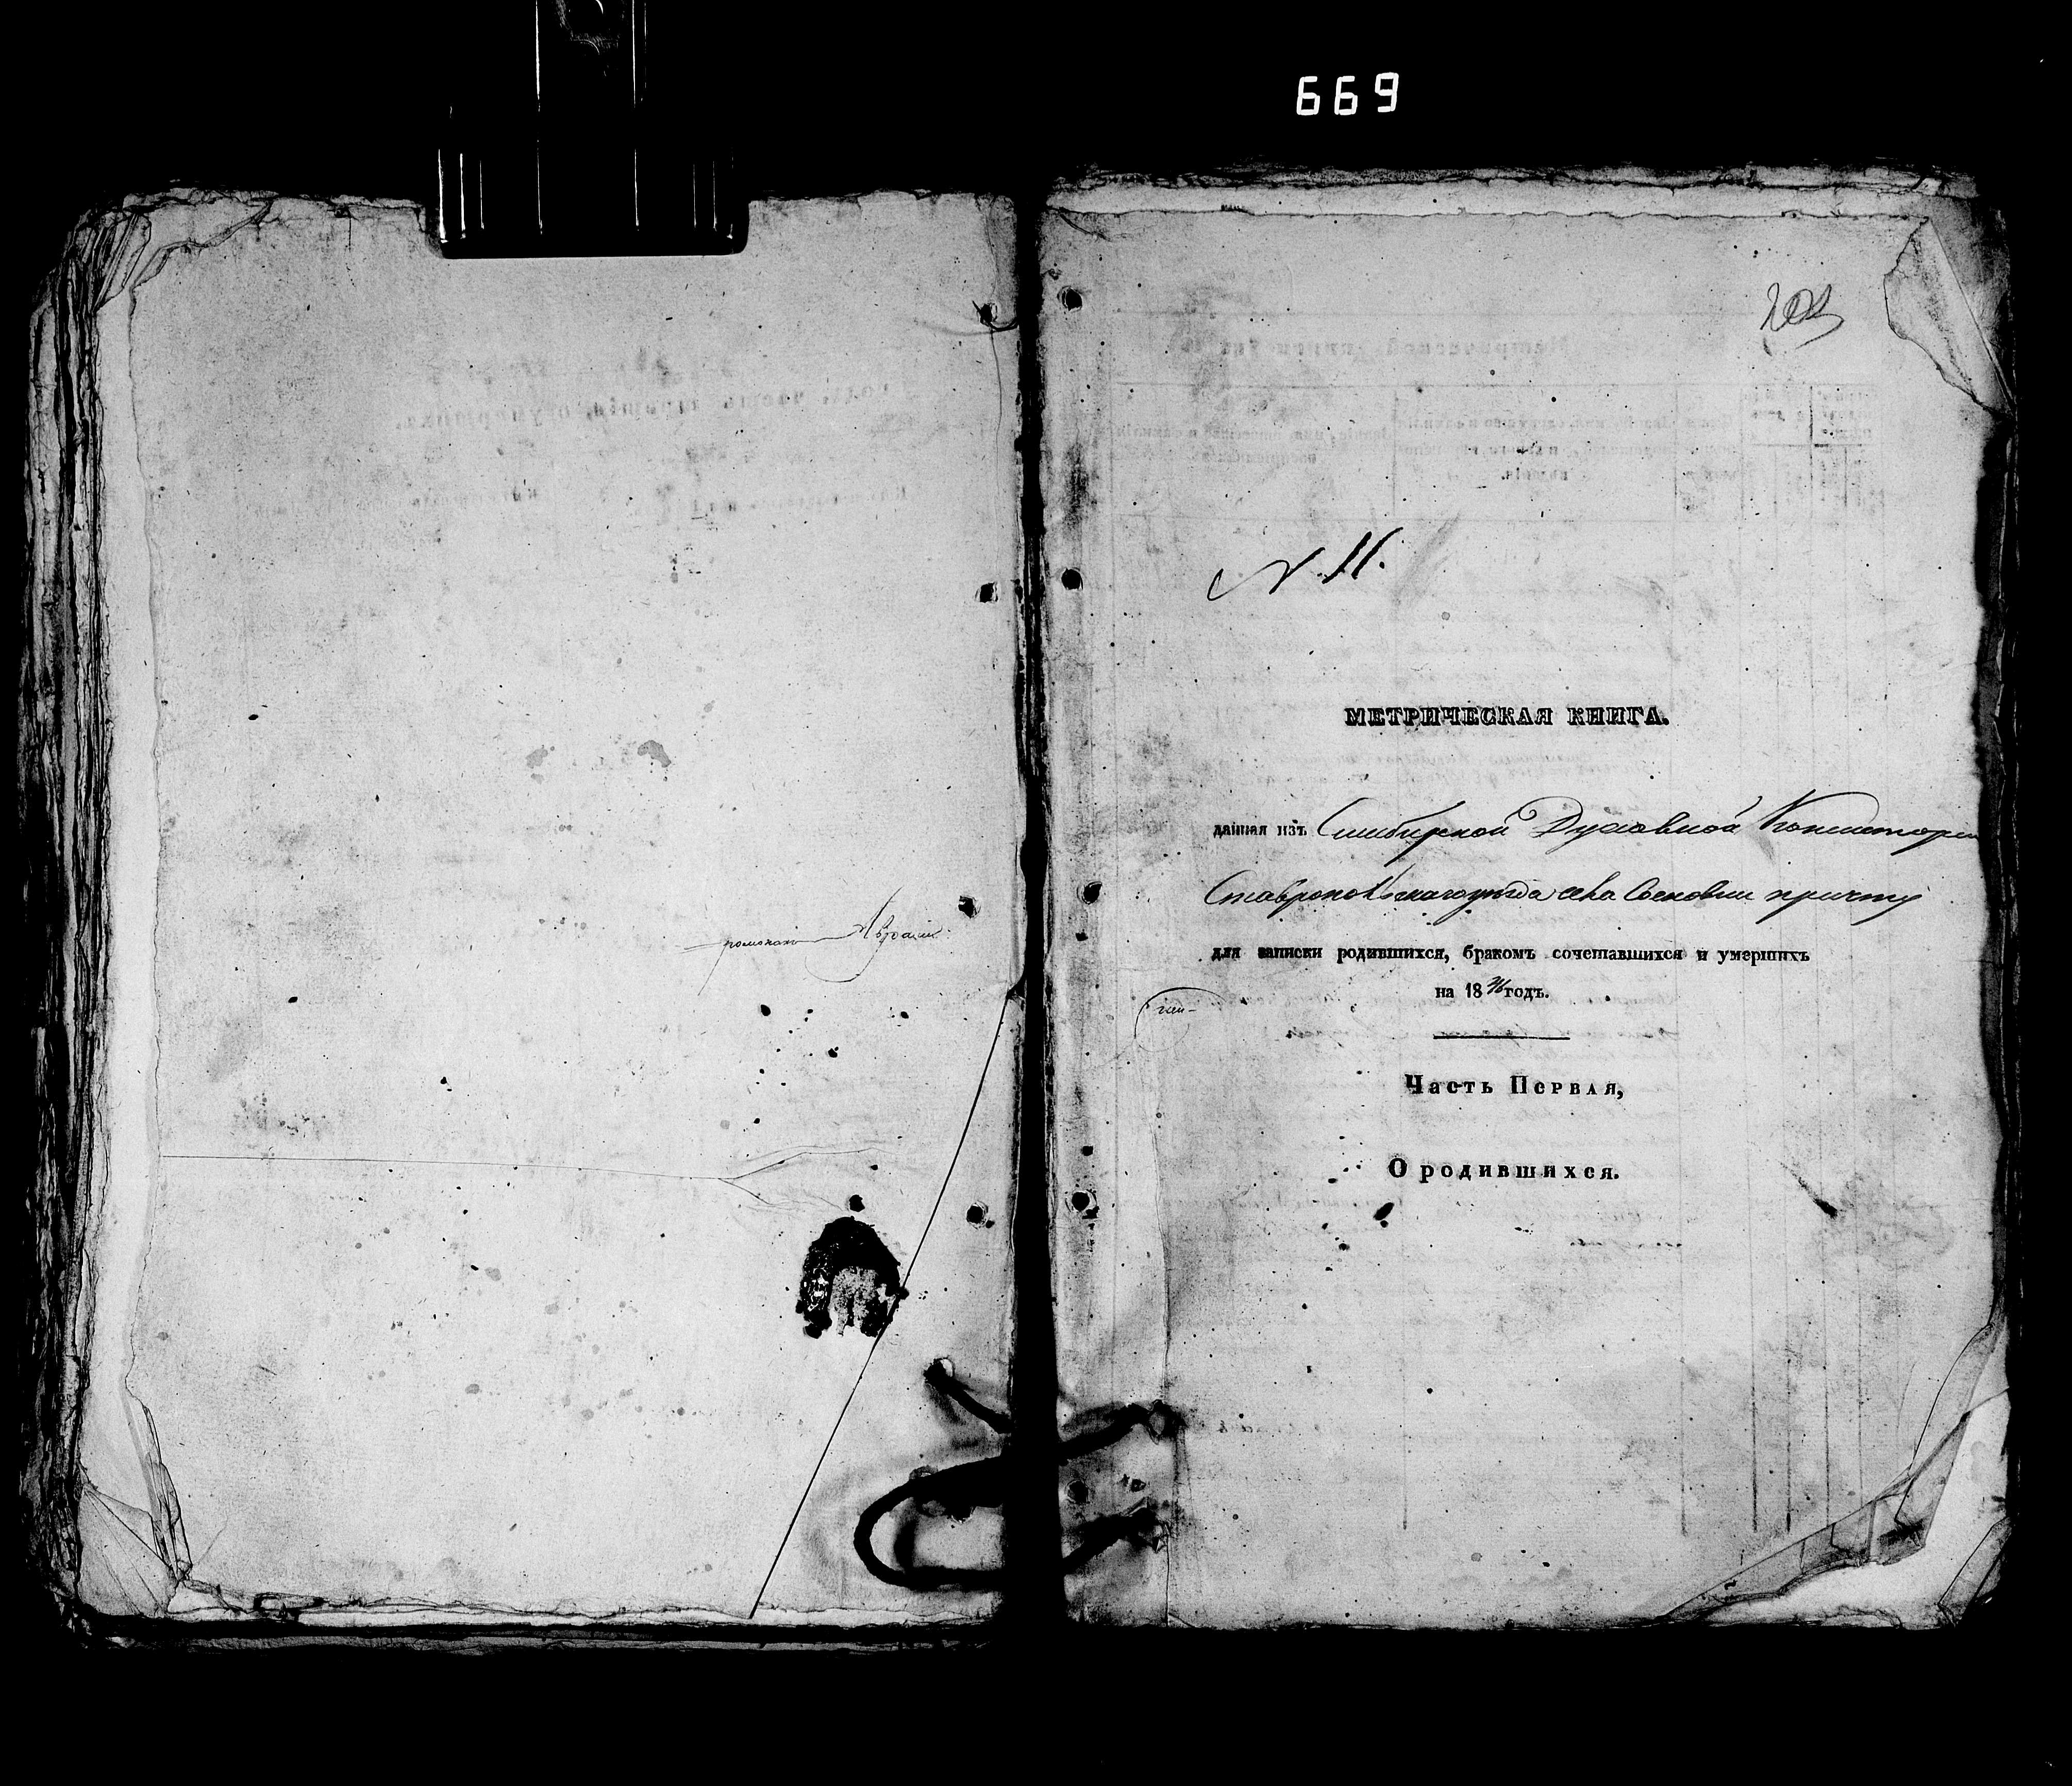 669
N 11.
МЕТРИЧЕСКАЯ КНИГА.
данная изъ Симбирской Духовной Консистори
Ставропольскаго уезда села Сосновки причту
для записки родившихся, бракомъ сочетавшихся и умершихъ
на 18 годъ.
Часть Первая,
О родившихся.